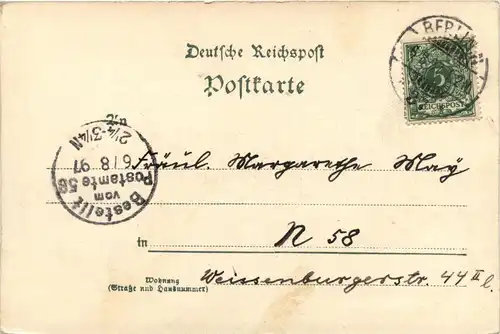 BERLIN
Deutsche Reichspost
Postkarte
5
REICHSPOST
An
Fräul. Margarethe May
Bestellt
vom
Postamte 58
6/8 97
2¼-3¼N
in
N 58
Wohnung
(Straße und Hausnummer)
Weissenburgerstr. 44 II l.